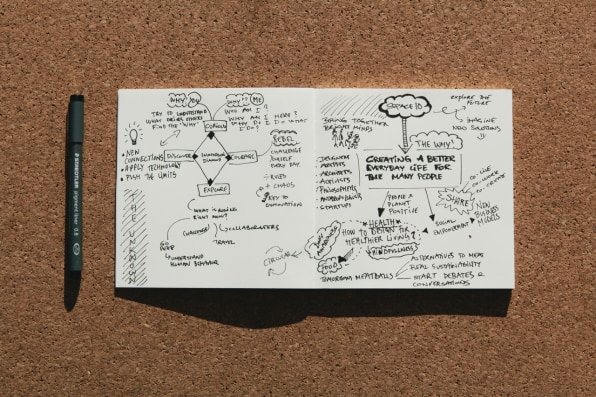 STAEDTLER pigment liner 0.8
WHY YOU
TRY TO UNDERSTAND
WHAT DRIVES OTHERS
FIND THE "WHY"
WHY?? ME
WHO AM I?
WHY AM I HERE?
WHY DO I DO WHAT
I DO?
CURIOUS
DISCOVER
COURAGE
EXPLORE
• NEW
CONNECTIONS
• APPLY TECHNOLOGY
• PUSH THE LIMITS
THE UNKNOWN
REBEL
CHALLENGE
YOURSELF
EVERY DAY
÷ RULES
+ CHAOS
KEY TO
INNOVATION
WHAT IS
RIGHT NOW?
CHALLENGE
COLLABORATORS
TRAVEL
GO
DEEP
UNDERSTAND
HUMAN BEHAVIOR
SPACE10
EXPLORE THE
FUTURE
IMAGINE
NEW SOLUTIONS
BRING TOGETHER
BRIGHT MINDS
- DESIGNERS
- ARTISTS
- ARCHITECTS
- ACTIVISTS
- PHILOSOPHERS
- ANTHROPOLOGISTS
- STARTUPS
THE WHY!
CREATING A BETTER
EVERYDAY LIFE FOR
THE MANY PEOPLE
CO-LIVE
CO-WORK
CO-CREATE
SHARE
NEW
BUSINESS
MODELS
PEOPLE &
PLANET
POSITIVE
SOCIAL
EMPOWERMENT
HEALTH
HOW TO DESIGN FOR
HEALTHIER LIVING
MINDFULNESS
CIRCULAR
FOOD
TOMORROWS MEATBALLS
ALTERNATIVES TO MEAT
RURAL SUSTAINABILITY
START DEBATES &
CONVERSATIONS